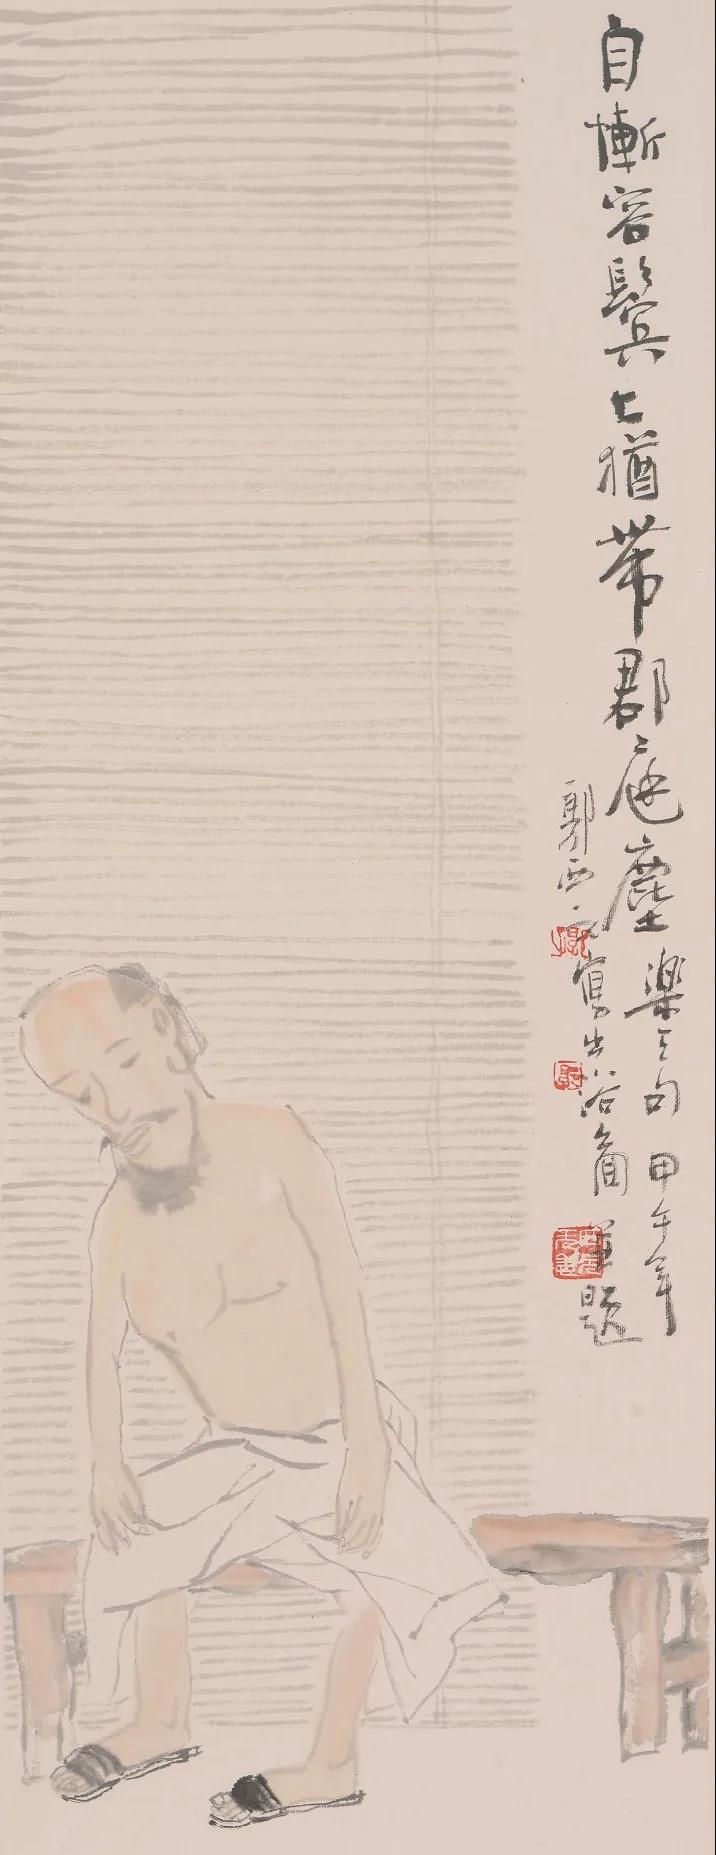 自慚容鬢上猶帶郡庭塵 樂天句 甲午年
郭西元寫出浴圖並題